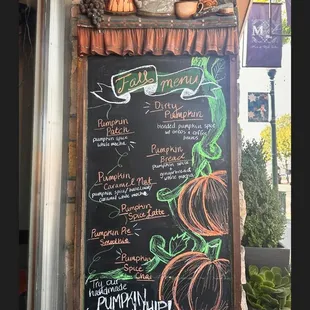 Fall menu
Dirty
Pumpkin
blended pumpkin spice
w/ oreos + coffee
Pumpkin
Patch
pumpkin spice
white mocha
Pumpkin
Bread
pumpkin spice
gingerbread
white mocha
Pumpkin
Caramel Nut
pumpkin spice/
caramel white mocha
Pumpkin
Spice Latte
Pumpkin Pie
Smoothie
Pumpkin
Spice Chai
Try our
handmade
PUMPKIN
WHIP!